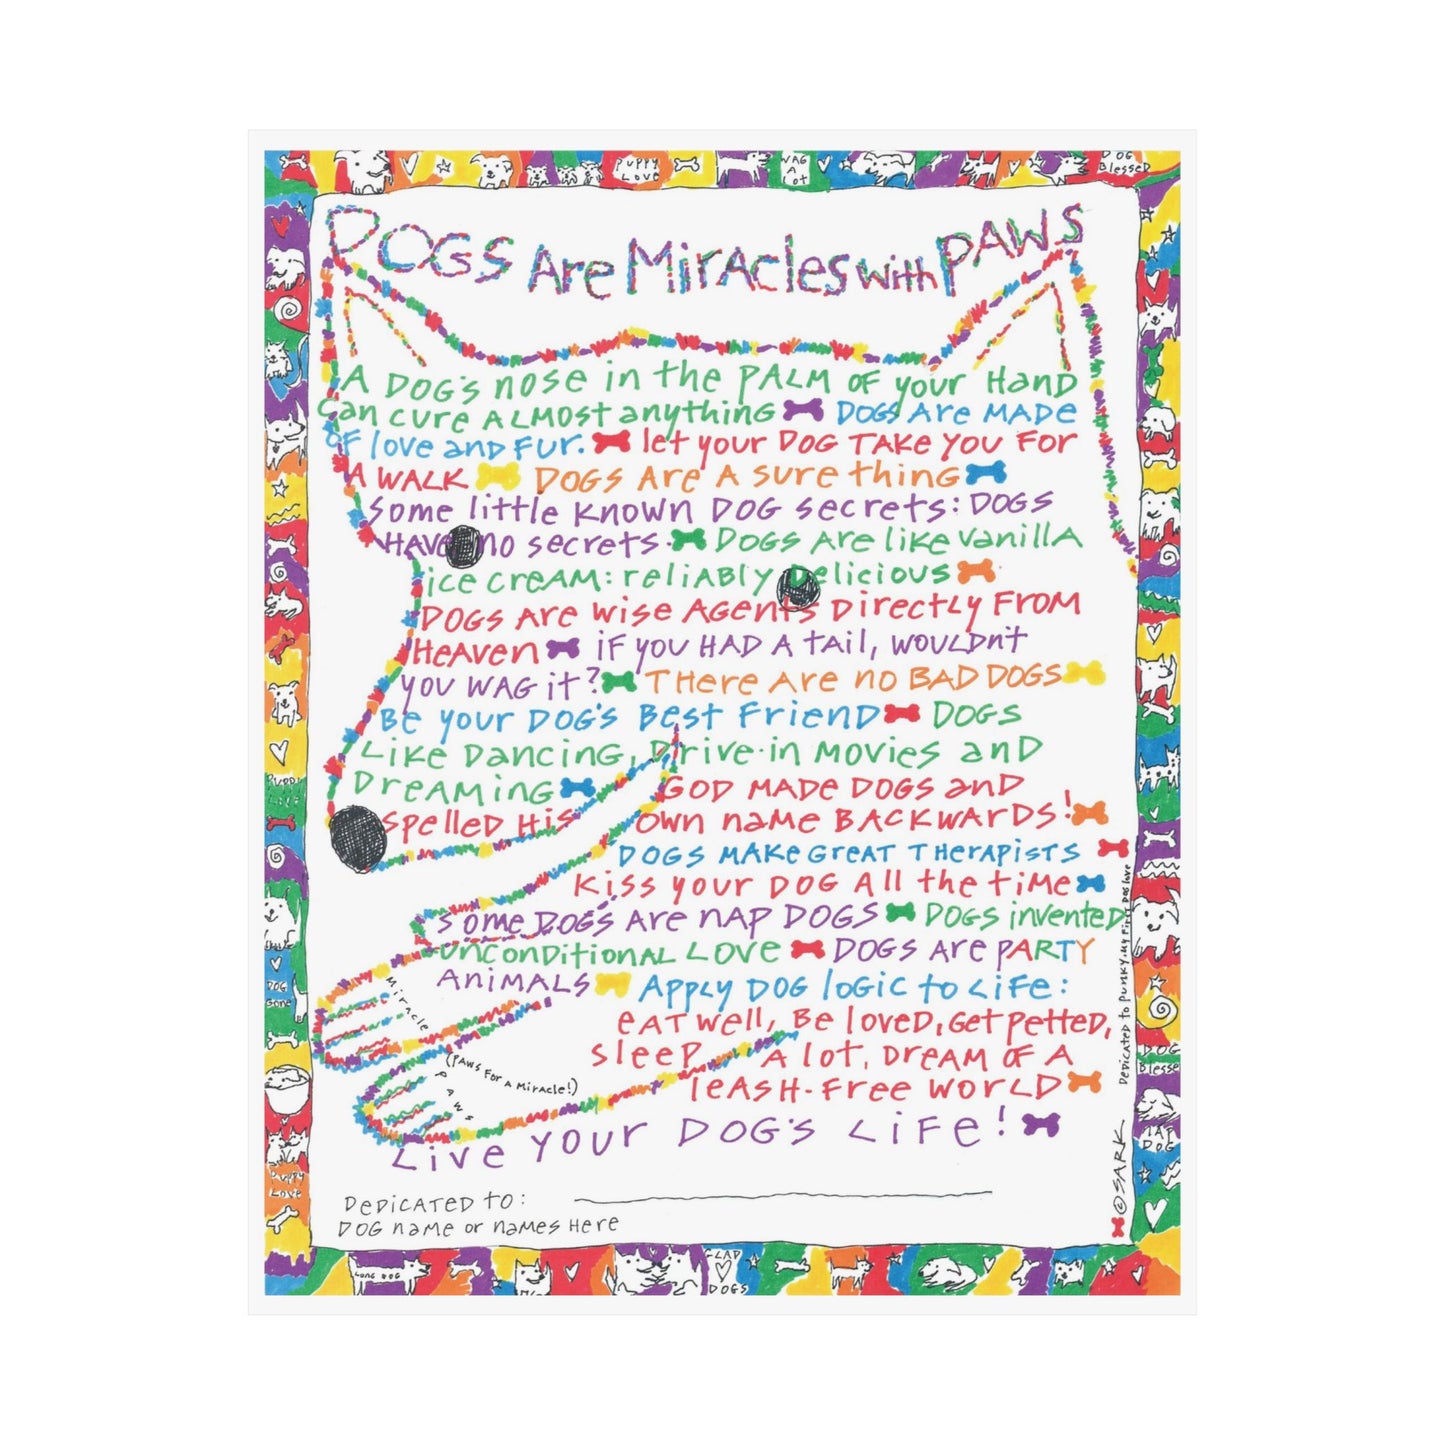 PUPPY LOVE
WAG A LOT
DOG Blessed
DOGS Are Miracles with PAWS
A DOG'S nose in the PALM OF your HAND
can cure ALMOST anything DOGS Are MADE
OF love and FUr. let your DOG TAKE YOU FOR
A WALK DOGS Are A sure thing
Some little known DOG secrets: DOGS
HAVE no secrets. DOGS Are like vanilla
ice cream: reliably Delicious
DOGS Are wise Agents Directly From
Heaven iF you HAD A tail, wouldn't
you WAG it? THere Are no BAD DOGS
Be your DOG'S Best Friend DOGS
Like Dancing, Drive-in movies and
Dreaming GOD MADE DOGS and
spelled His own name BACKWARDS!
DOGS MAKE Great THerapists
Kiss your DOG All the time
Some DOGS Are nap DOGS DOGS invented
unconditional Love DOGS Are PARTY
Animals Apply DOG logic to Life:
eat well, Be loved, Get petted,
sleep A lot, Dream OF A
leASH-Free World
Miracle
(PAWS For a Miracle!)
PAWS
Live your DOG'S Life!
DEDICATED to:
DOG name or names Here
Dedicated to Punky, my First Dog love
©SARK
Puppy Love
DOG Gone
DOG Blessed
LAP DOG
Puppy Love
LONG DOG
GLAD DOGS